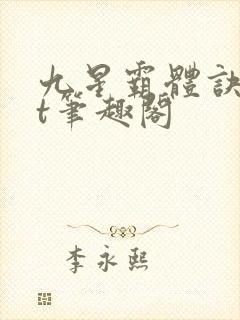 九星霸體訣
t筆趣閣
李永熙